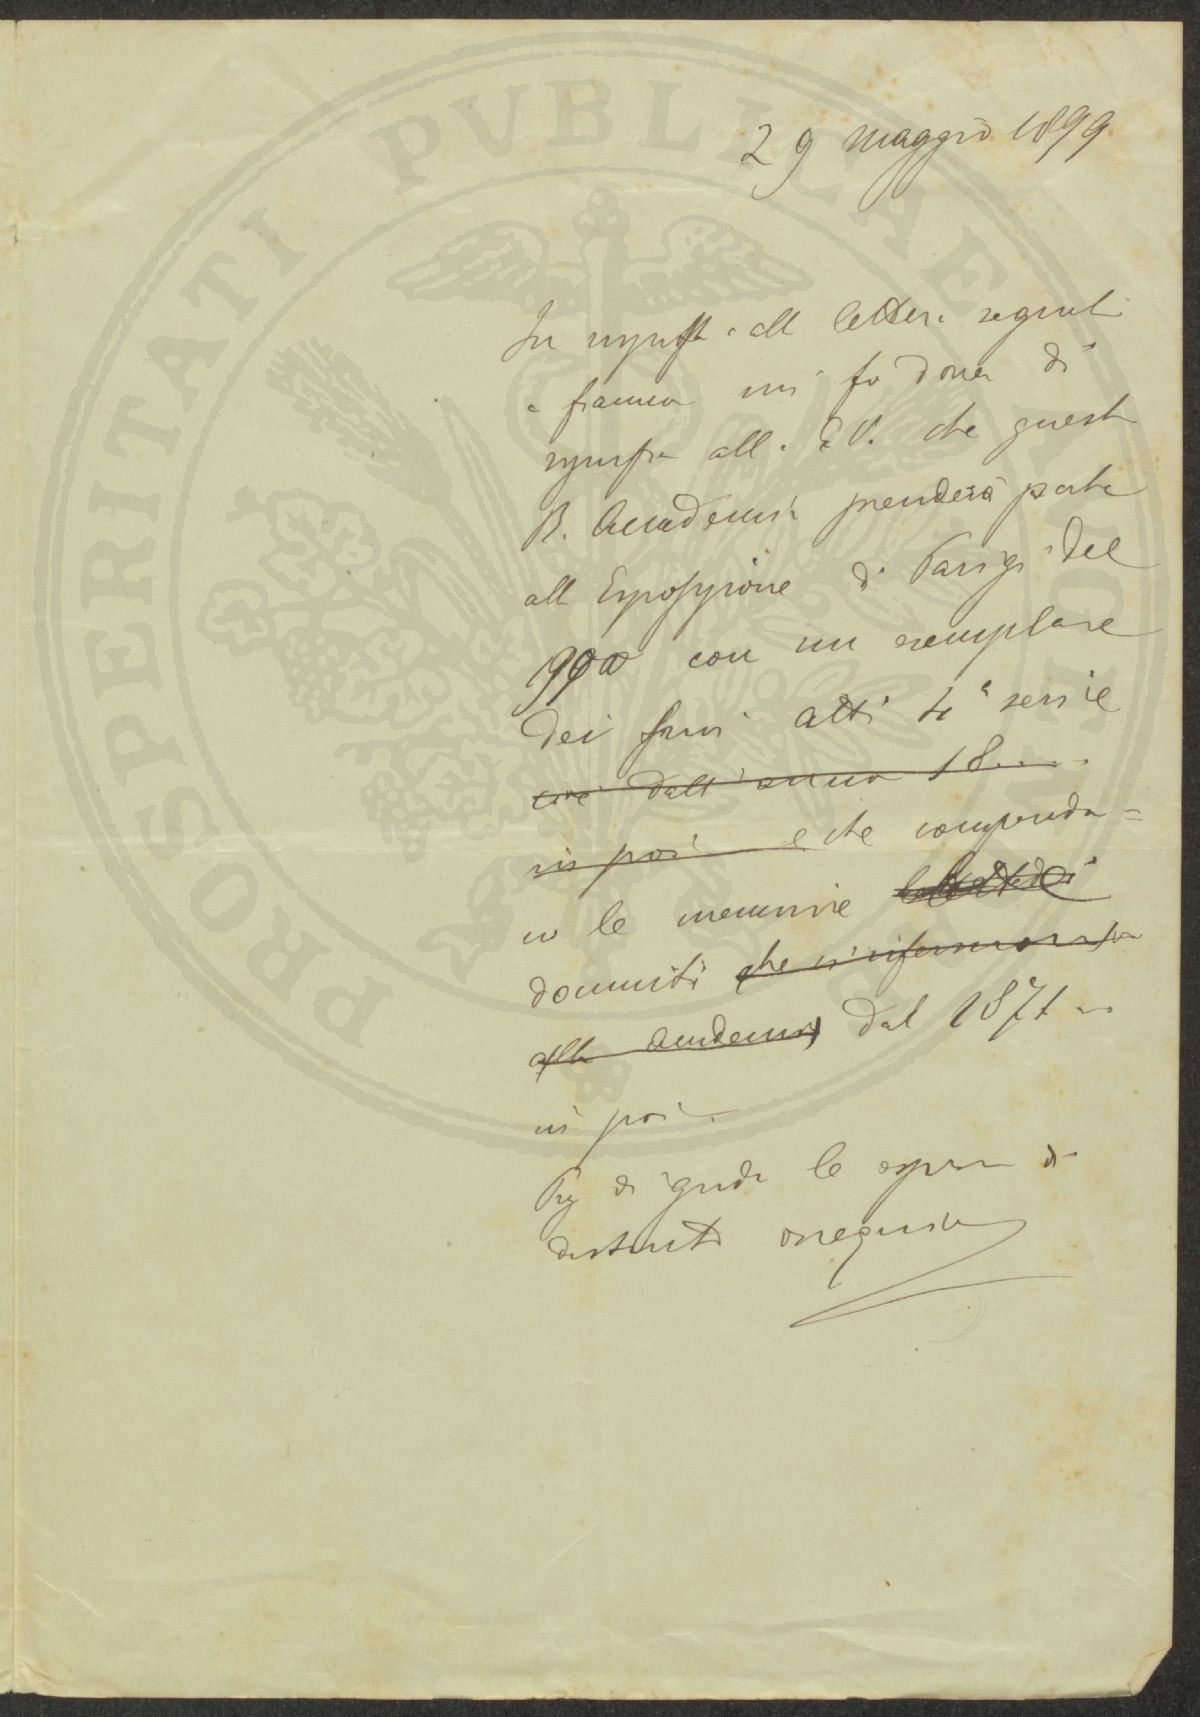 29 maggio 1899
In risposta alla lettera segnata
a fianco mi fo dovere di
risposta alla E.V. che questa
R. Accademia prenderà parte
alla Esposizione di Parigi del
900 con un esemplare
dei suoi atti 4ª serie
cioè dall'anno 18....
in poi e che comprenda=
no le memorie
documenti che si riferiscono
alla Accademia dal 1871
in poi.
di gradire le espressioni di
distinto ossequio
PROSPERITATI PVBLICAE